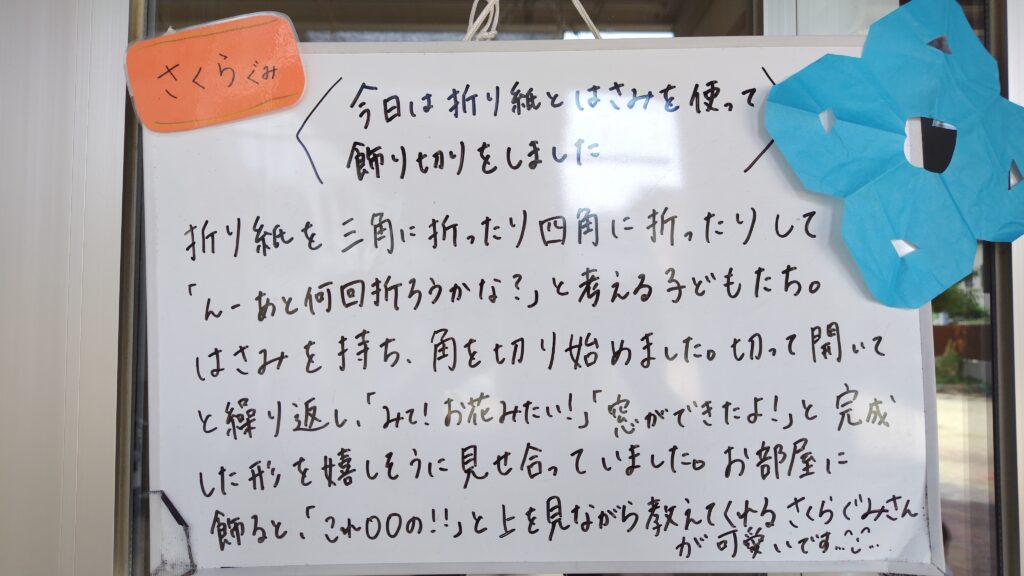 さくらぐみ
〈今日は折り紙とはさみを使って
飾り切りをしました〉
折り紙を三角に折ったり四角に折ったりして
「んーあと何回折ろうかな?」と考える子どもたち。
はさみを持ち、角を切り始めました。切って開いて
と繰り返し、「みて!お花みたい!」「窓ができたよ!」と完成
した形を嬉しそうに見せ合っていました。お部屋に
飾ると、「これ〇〇の!!」と上を見ながら教えてくれるさくらぐみさん
が可愛いです…